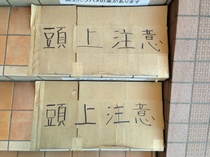 頭上注意
頭上注意